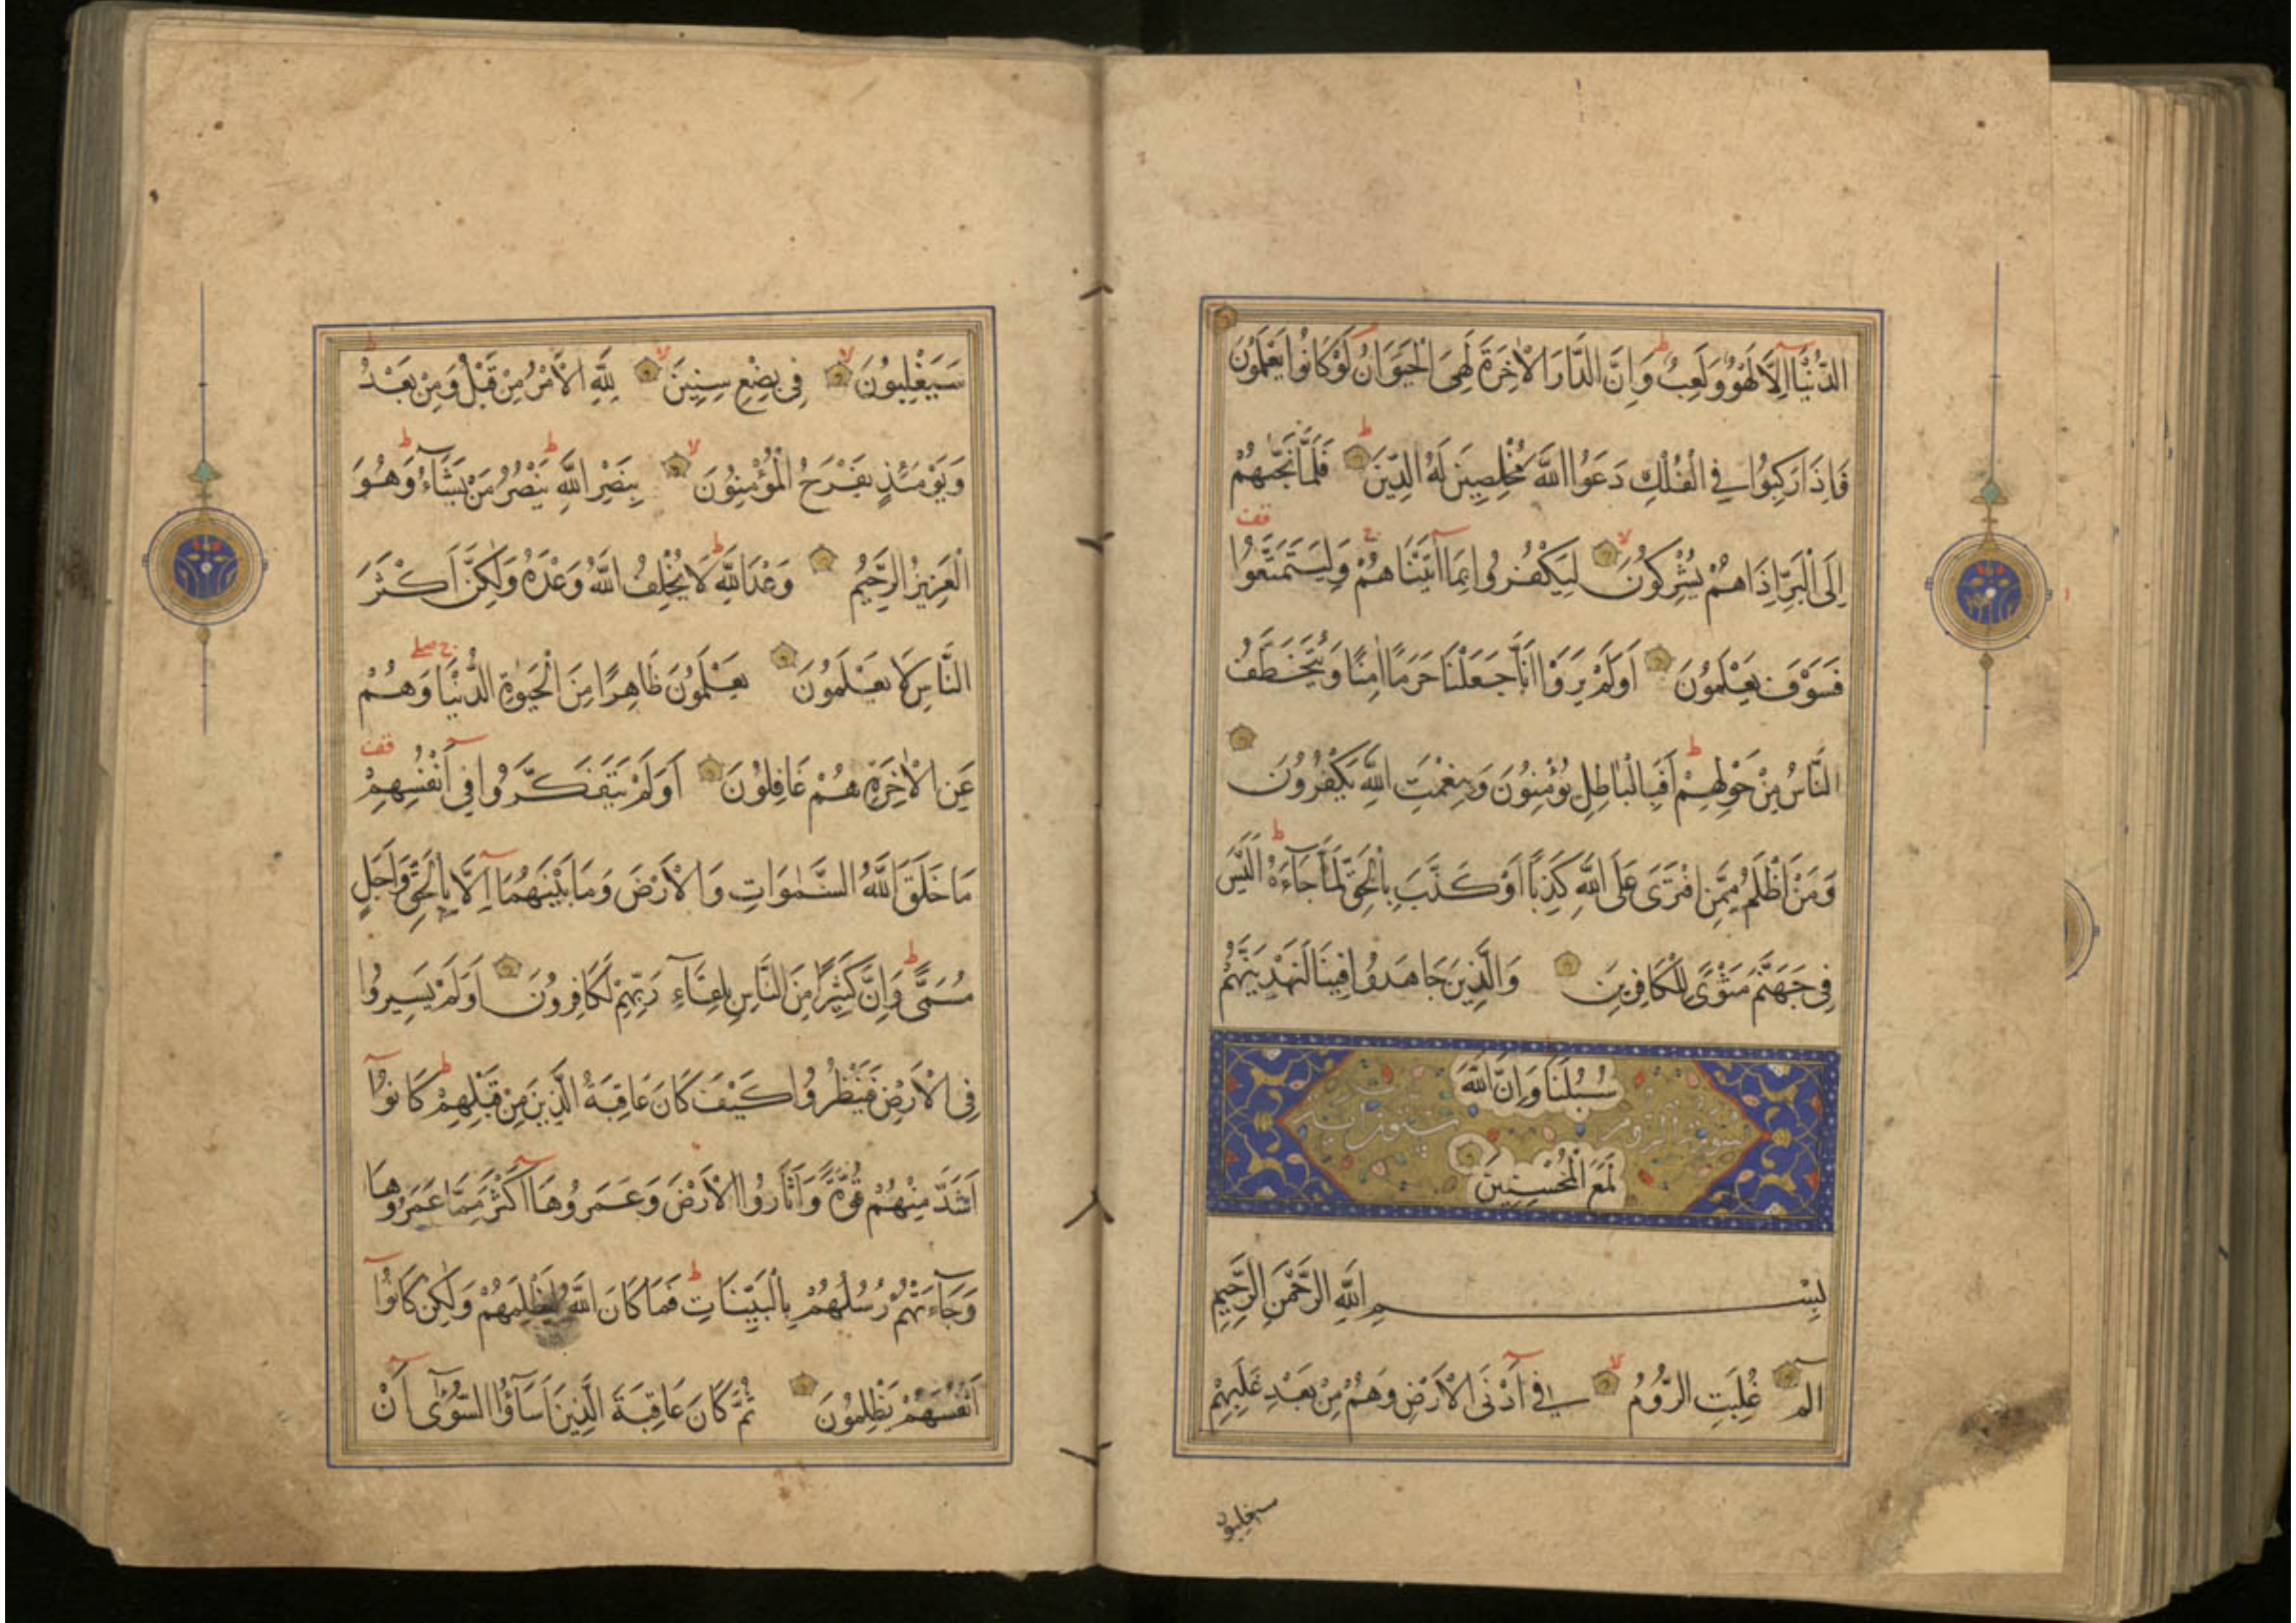 الدُّنْيَا إِلَّا لَهْوٌ وَلَعِبٌ وَإِنَّ الدَّارَ الْآخِرَةَ لَهِيَ الْحَيَوَانُ لَوْ كَانُوا يَعْلَمُونَ
فَإِذَا رَكِبُوا فِي الْفُلْكِ دَعَوُا اللَّهَ مُخْلِصِينَ لَهُ الدِّينَ فَلَمَّا نَجّٰهُمْ
قف
إِلَى الْبَرِّ إِذَا هُمْ يُشْرِكُونَ لِيَكْفُرُوا بِمَا آتَيْنَاهُمْ وَلِيَتَمَتَّعُوا
فَسَوْفَ يَعْلَمُونَ أَوَلَمْ يَرَوْا أَنَّا جَعَلْنَا حَرَمًا آمِنًا وَيُتَخَطَّفُ
النَّاسُ مِنْ حَوْلِهِمْ أَفَبِالْبَاطِلِ يُؤْمِنُونَ وَبِنِعْمَتِ اللَّهِ يَكْفُرُونَ
وَمَنْ أَظْلَمُ مِمَّنِ افْتَرَى عَلَى اللَّهِ كَذِبًا أَوْ كَذَّبَ بِالْحَقِّ لَمَّا جَاءَهُ أَلَيْسَ
فِي جَهَنَّمَ مَثْوًى لِلْكَافِرِينَ وَالَّذِينَ جَاهَدُوا فِينَا لَنَهْدِيَنَّهُمْ
سُبُلَنَا وَإِنَّ اللَّهَ
سورة الروم ستون آية
لَمَعَ الْمُحْسِنِينَ
بِسْمِ اللَّهِ الرَّحْمٰنِ الرَّحِيمِ
الم غُلِبَتِ الرُّومُ فِي أَدْنَى الْأَرْضِ وَهُمْ مِنْ بَعْدِ غَلَبِهِمْ
سيغلبون
سَيَغْلِبُونَ فِي بِضْعِ سِنِينَ لِلَّهِ الْأَمْرُ مِنْ قَبْلُ وَمِنْ بَعْدُ
وَيَوْمَئِذٍ يَفْرَحُ الْمُؤْمِنُونَ بِنَصْرِ اللَّهِ يَنْصُرُ مَنْ يَشَاءُ وَهُوَ
الْعَزِيزُ الرَّحِيمُ وَعْدَ اللَّهِ لَا يُخْلِفُ اللَّهُ وَعْدَهُ وَلَكِنَّ أَكْثَرَ
النَّاسِ لَا يَعْلَمُونَ يَعْلَمُونَ ظَاهِرًا مِنَ الْحَيٰوةِ الدُّنْيَا وَهُمْ
قف
عَنِ الْآخِرَةِ هُمْ غَافِلُونَ أَوَلَمْ يَتَفَكَّرُوا فِي أَنْفُسِهِمْ
مَا خَلَقَ اللَّهُ السَّمٰوَاتِ وَالْأَرْضَ وَمَا بَيْنَهُمَا إِلَّا بِالْحَقِّ وَأَجَلٍ
مُسَمًّى وَإِنَّ كَثِيرًا مِنَ النَّاسِ بِلِقَاءِ رَبِّهِمْ لَكَافِرُونَ أَوَلَمْ يَسِيرُوا
فِي الْأَرْضِ فَيَنْظُرُوا كَيْفَ كَانَ عَاقِبَةُ الَّذِينَ مِنْ قَبْلِهِمْ كَانُوا
أَشَدَّ مِنْهُمْ قُوَّةً وَأَثَارُوا الْأَرْضَ وَعَمَرُوهَا أَكْثَرَ مِمَّا عَمَرُوهَا
وَجَاءَتْهُمْ رُسُلُهُمْ بِالْبَيِّنَاتِ فَمَا كَانَ اللَّهُ لِيَظْلِمَهُمْ وَلَكِنْ كَانُوا
أَنْفُسَهُمْ يَظْلِمُونَ ثُمَّ كَانَ عَاقِبَةَ الَّذِينَ أَسَاؤُا السُّوآى أَنْ